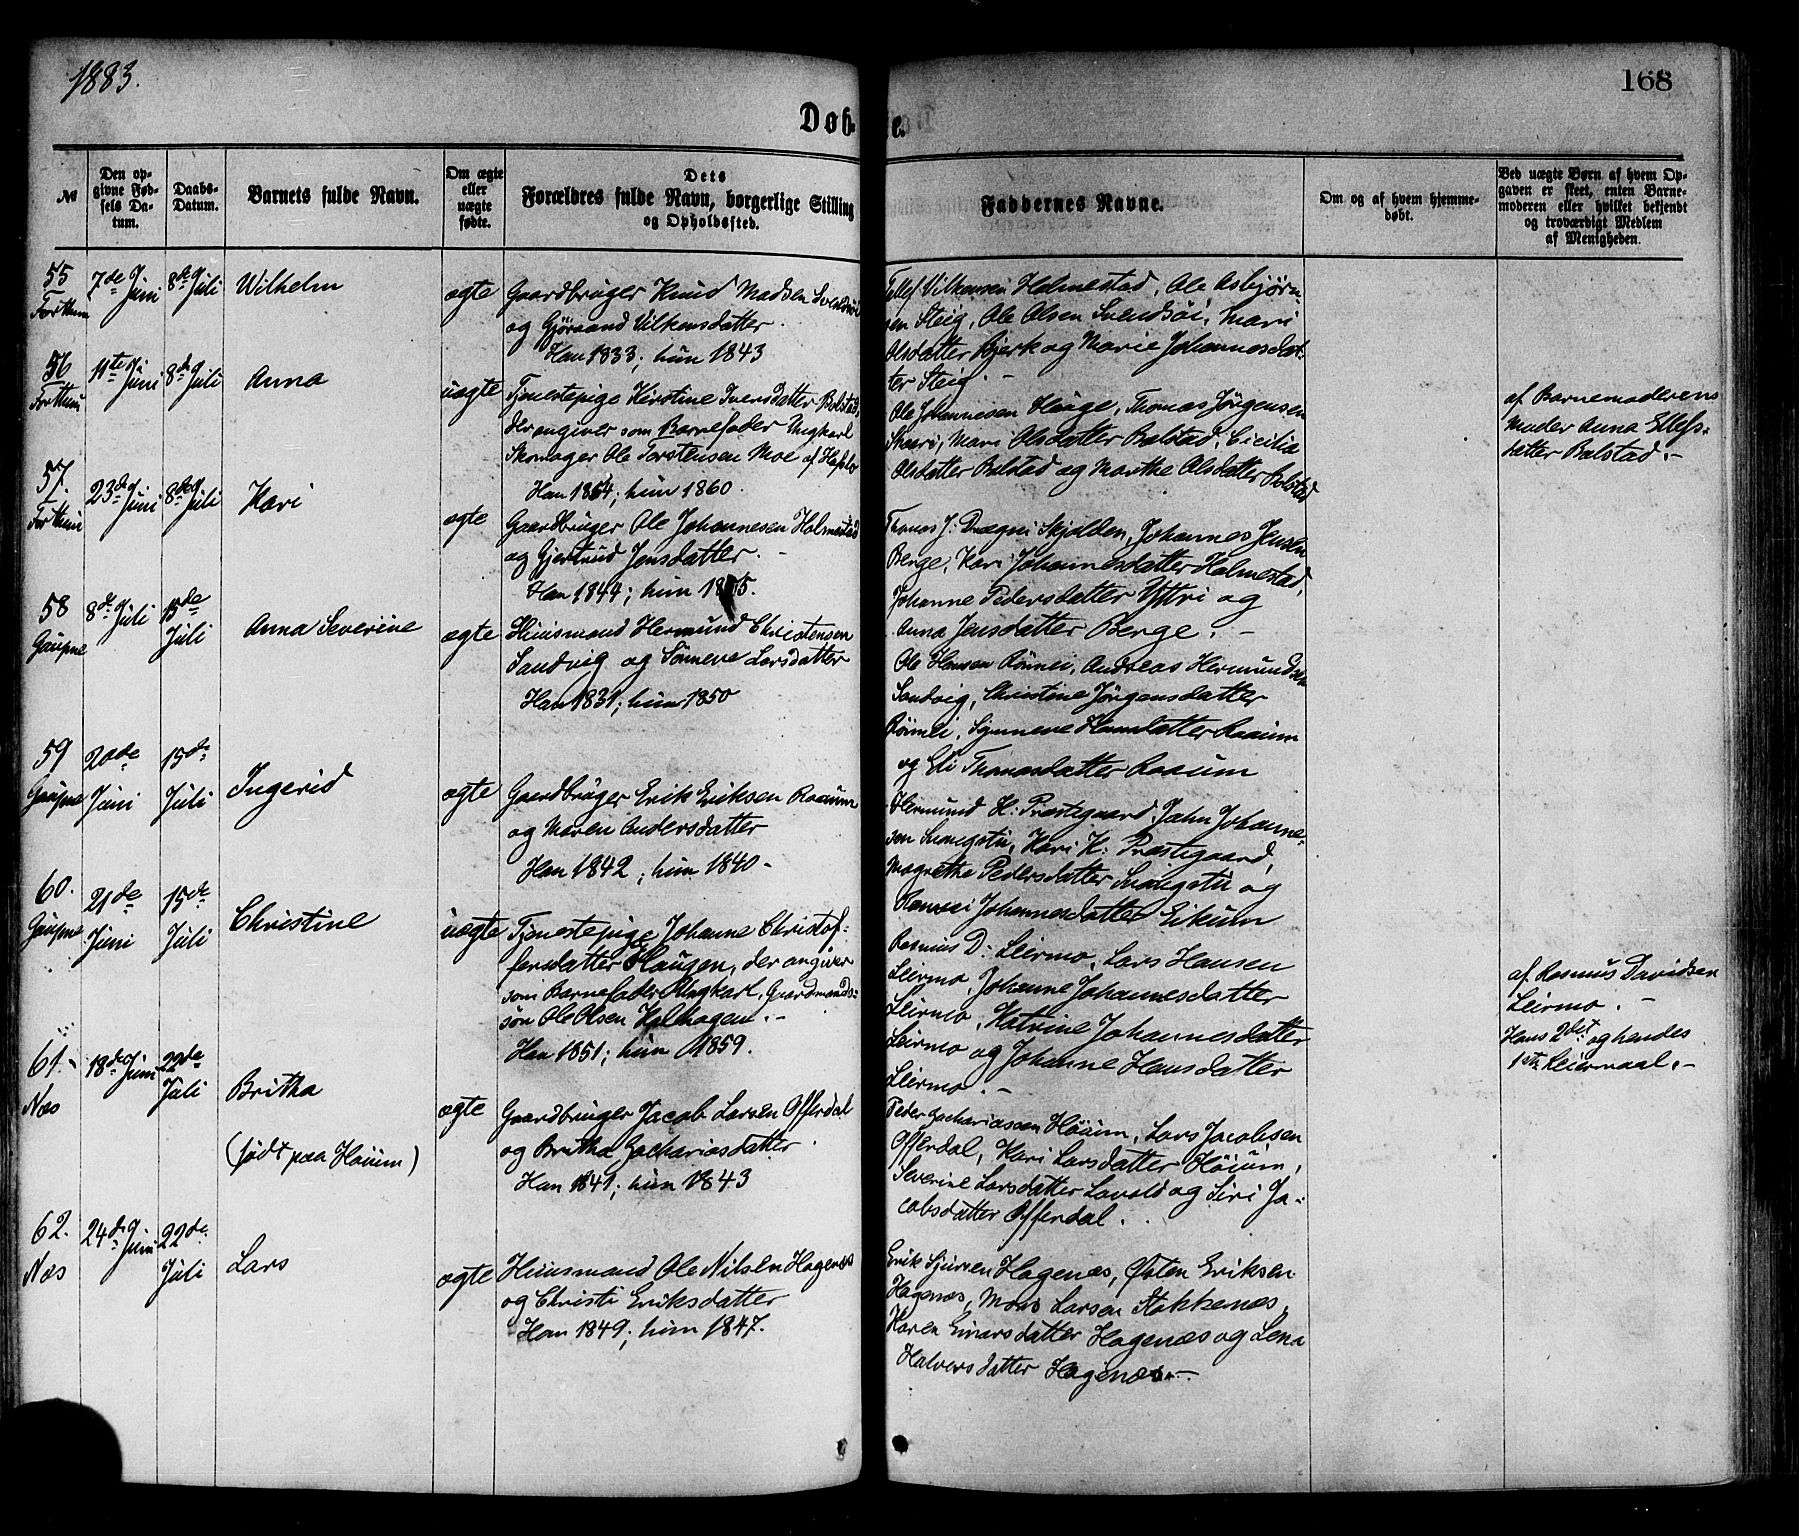 1883.
168
Døb-
te.
№
Den op-
givne Fød-
sels Da-
tum.
Daabs-
Datum.
Barnets fulde Navn.
Om ægte
eller
uægte
fødte.
Dets
Forældres fulde Navn, borgerlige Stilling
og Opholdssted.
Faddernes Navne.
Om og af hvem hjemme-
døbt.
Ved uægte Børn af hvem Op-
gaven er skeet, enten Barne-
moderen eller hvilket bekjendt
og troværdigt Medlem
af Menigheden.
55
Forthun
7de Juni
8de Juli
Wilhelm
ægte
Gaardbruger Knud Madsen Svendsøi
og Gjøraand Vilkensdatter.
Han 1833; hun 1843
Vilkensen Holmestad, Ole Asbjørn-
sen Steig, Ole Olsen Svendsøi, Mari
Olsdatter Bjerk og Marie Johannesdat-
ter Steig. -
56
Forthun
11te Juni
8de Juli
Anna
uægte
Tjenestepige Kirstine Iversdatter Bolstad,
der angiver som Barnefader Ungkarl
Skomager Ole Torstensen Moe af Hafslo
Han 1854; hun 1860.
Ole Johannesen Hauge, Thomas Jørgensen
Skaar, Mari Olsdatter Bolstad, Cicilia
Olsdatter Bolstad og Marthe Olsdatter Bolstad
af Barnemoderens
Moder Anna Ellefs-
datter Bolstad. -
57.
Forthun
23de Juni
8de Juli
Kari
ægte
Gaardbruger Ole Johannesen Holmestad
og Gjertrud Jensdatter. -
Han 1844; hun
Thomas J: Drægni Skjolden, Johannes Jensen
Berge, Kari Johannesdatter Holmestad,
Johanne Pedersdatter Yttri og
Anna Jensdatter Berge. -
58
Gaupne
8de Juli
15de
Juli
Anna Severine
ægte
Huusmand Hermund Christensen
Sandvig og Sønneve Larsdatter
Han 1831; hun 1850
Ole Hansen Rønnei, Andreas Hermundsen
Sandvig, Christine Jørgensdatter
Rønnei, Synneve Hansdatter Raaum
og Eli Thomasdatter Raaum
59
Gaupne
20de
Juni
15de
Juli
Ingerid
ægte
Gaardbruger Erik Eriksen Raaum
og Maren Andersdatter
Han 1842; hun 1840 -
Hermund H: Præstegaard, John Johanne-
sen Snangstu, Kari H: Præstegaard,
Magrethe Pedersdatter Snangstu og
Johannesdatter Eikum
60.
Gaupne
21de
Juni
15de
Juli
Christine
uægte
Tjenestepige Johanne Christof-
fersdatter Haugen, der angiver
som Barnefader Ungkarl, Gaardmands-
søn Ole Olsen Kalhagen. -
Han 1851; hun 1859.
Rasmus D: Leirmo, Lars Hansen
Leirmo, Johanne Johannesdatter
Leirmo, Katrine Johannesdatter
Leirmo og Johanne Hansdatter
Leirmo. -
af Rasmus Davidsen
Leirmo. -
Hans 2det og hendes
1ste Leiermaal. -
61. -
Næs
18de Juni
22de
Juli
Britha
(født paa Høium)
ægte
Gaardbruger Jacob Larsen Offerdal
og Britha Zachariasdatter.
Han 1841; hun 1843
Peder Zachariassen Høium, Lars Jacobsen
Offerdal, Kari Larsdatter Høium,
Severine Larsdatter Lavold og Siri Ja-
cobsdatter Offerdal.
62.
Næs
24de Juni
22de
Juli
Lars
ægte
Huusmand Ole Nilsen Hagenæs
og Christi Eriksdatter
Han 1849; hun 1847.
Erik Sjursen Hagenæs, Østen Eriksen
Hagenæs, Mons Larsen Stokkenæs,
Karen Einarsdatter Hagenæs og Lena
Halversdatter Hagenæs. -